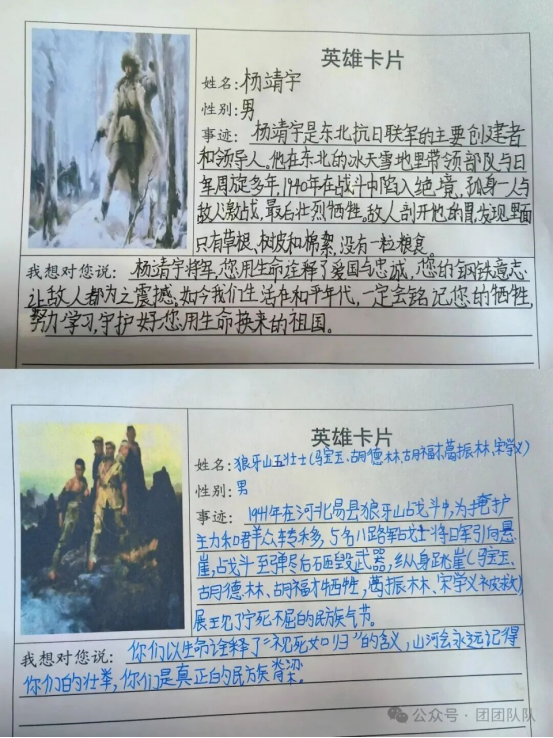 英雄卡片
姓名:杨靖宇
性别:男
事迹: 杨靖宇是东北抗日联军的主要创建者
和领导人。他在东北的冰天雪地里带领部队与日
军周旋多年,1940年在战斗中陷入绝境,孤身一人与
敌人激战,最后壮烈牺牲。敌人剖开他的胃,发现里面
只有草根、树皮和棉絮,没有一粒粮食。
我想对您说: 杨靖宇将军,您用生命诠释了爱国与忠诚,您的钢铁意志
让敌人都为之震撼;如今我们生活在和平年代,一定会铭记您的牺牲,
努力学习,守护好您用生命换来的祖国。
英雄卡片
姓名:狼牙山五壮士(马宝玉、胡德林、胡福才、葛振林、宋学义)
性别:男
事迹: 1941年在河北易县狼牙山战斗中,为掩护
主力和群众转移,5名八路军战士将日军引向悬
崖,战斗至弹尽后砸毁武器,纵身跳崖(马宝玉、
胡德林、胡福才牺牲,葛振林、宋学义被救)
展现了宁死不屈的民族气节。
我想对您说: 你们以生命诠释了“视死如归”的含义,山河会永远记得
你们的壮举,你们是真正的民族脊梁。
公众号·团团队队